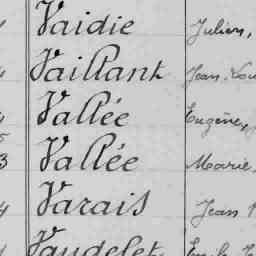 Vaidie Julien,
Vaillant Jean Lou
Vallée Eugène,
3 Vallée Marie,
4 Varais Jean
Vaudelet Emile